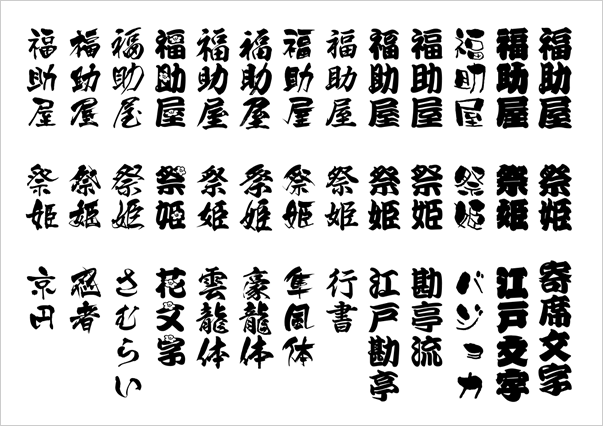 福助屋
福助屋
福助屋
福助屋
福助屋
福助屋
福助屋
福助屋
福助屋
福助屋
福助屋
福助屋
福助屋
祭姫
祭姫
祭姫
祭姫
祭姫
祭姫
祭姫
祭姫
祭姫
祭姫
祭姫
祭姫
祭姫
寄席文字
江戸文字
バジョカ
勘亭流
江戸勘亭
行書
隼風体
豪龍体
雲龍体
花文字
さむらい
忍者
京円